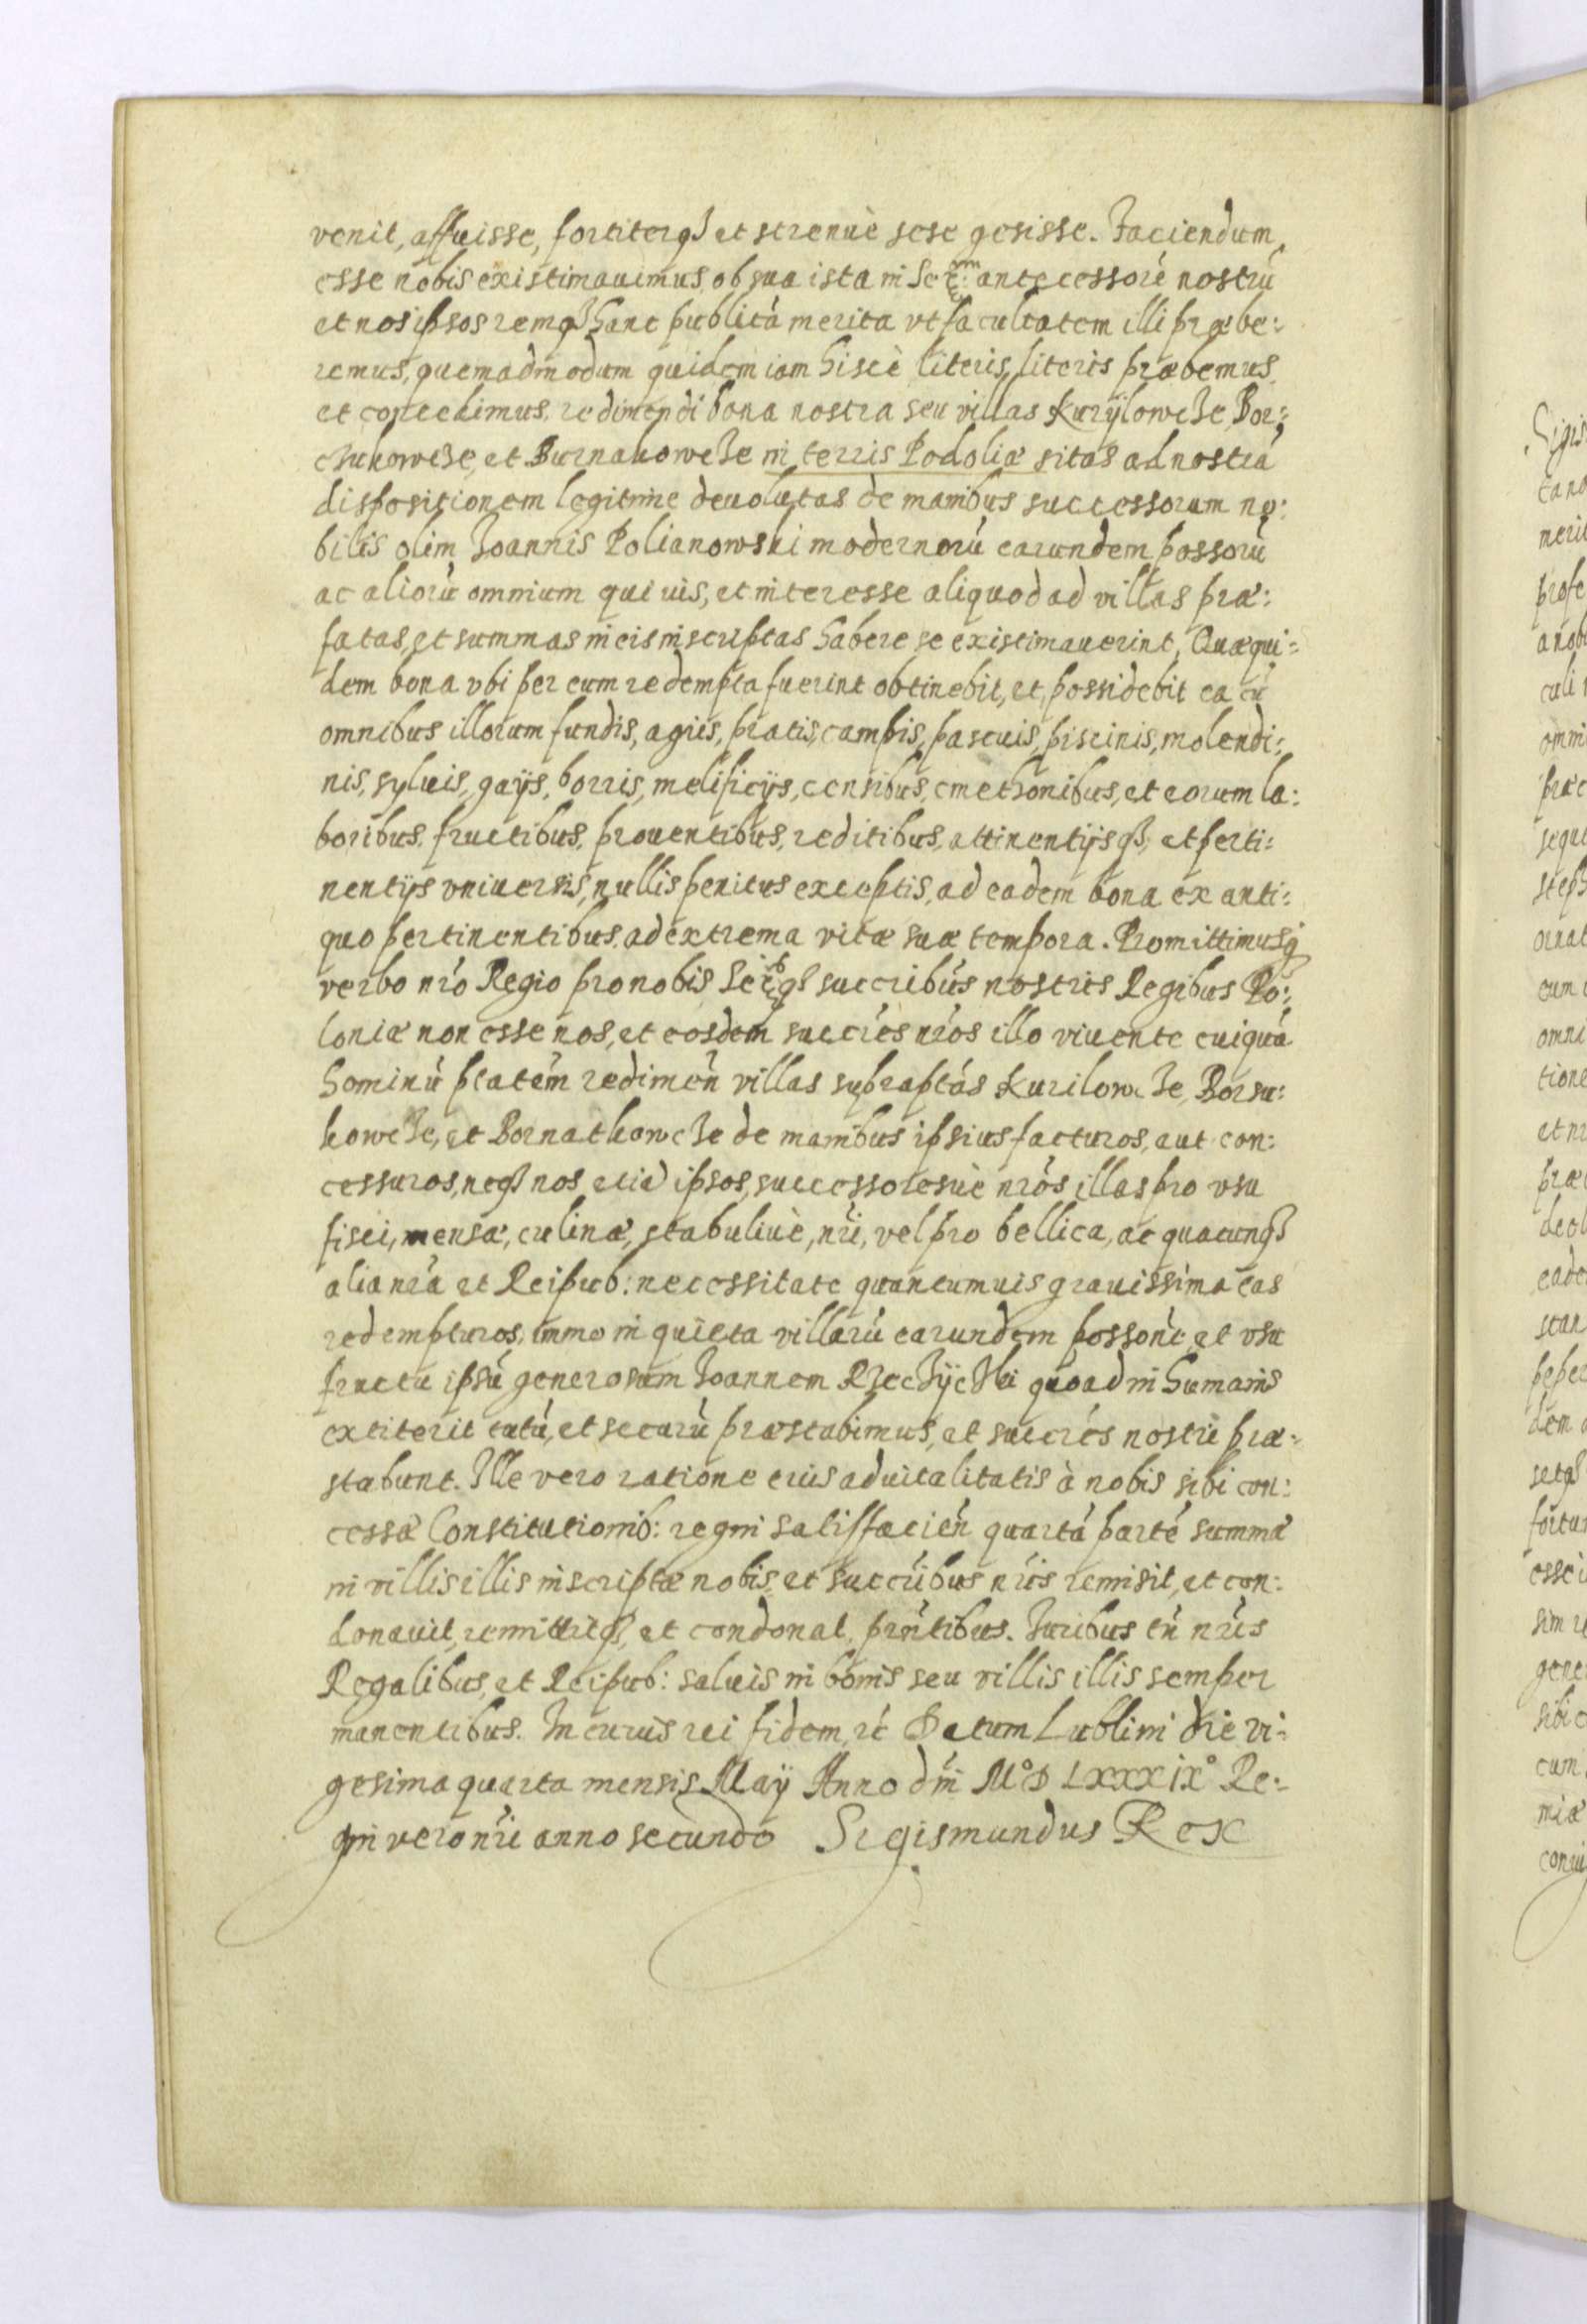 venit, affuisse, fortiterq3 et strenuè sese gesisse. Faciendum
esse nobis existimauimus, ob sua ista in Se antecessorē nostrū
et nos ipsos remq3 hanc publicā merita vt facultatem illi præbe:
remus, quemadmodum quidem iam hiscè literis, literis præbemus
et concedimus redimendi bona nostra seu villas Kurÿlowcze, Bor:
czukowcze, et Burnakowcze in terris Podoliæ sitas ad nostrā
dispositionem legitime deuolutas de manibus successorum no:
bilis olim Joannis Polianowski modernorū earundem possorū
ac aliorū omnium qui uis, et interesse aliquod ad villas præ:
fatas, et summas in eis inscriptas habere se existimauerint, Quæ qui:
dem bona vbi per eum redempta fuerint obtinebit, et possidebit ea cū
omnibus illorum fundis, agris, pratis, campis, pascuis, piscinis, molendi:
nis, syluis, gaÿs, borris, melificÿs, censibus, cmethonibus, et eorum la:
boribus, fructibus, prouentibus, reditibus, attinentÿsq3, et perti:
nentÿs vniuersis, nullis penitus exceptis, ad eadem bona ex anti:
quo pertinentibus, ad extrema vitæ suæ tempora. Promittimusq3
verbo nro Regio pro nobis succribus nostris Regibus Po:
loniæ non esse nos, et eosdem succres nros illo viuente cuiquā
hominū ptatem redimen villas supraptas Kurilowcze, Borsu:
kowcze, et Bornathowcze de manibus ipsius facturos, aut con:
cessuros, neq3 nos etiā ipsos, successoresuè nros illas pro vsu
fisci, mensæ, culinæ, stabuliuè, nri, vel pro bellica, ac quacunq3
alia nra et Reipub: necessitate quantumuis grauissima eas
redempturos, immo in quieta villarū earundem possone, et vsu
fructu ipsū generosum Joannem Rzeczÿcki quoad in humanis
extiterit tutū, et securū præstabimus, et succres nostri præ:
stabunt. Ille vero ratione eius aduitalitatis à nobis sibi con:
cessæ Constitutionib: regni satisfacien quartā partē summæ
in villis illis inscriptæ nobis, et succribus nris remisit, et con:
donauit, remittitq3, et condonat prntibus. Juribus tn nris
Regalibus, et Reipub: saluis in bonis seu villis illis semper
manentibus. In cuius rei fidem, rc Datum Lublini die vi:
gesima quarta mensis Maÿ Anno dni M°D LXXXIX° Re:
gni vero nri anno secundo Sigismundus Rex